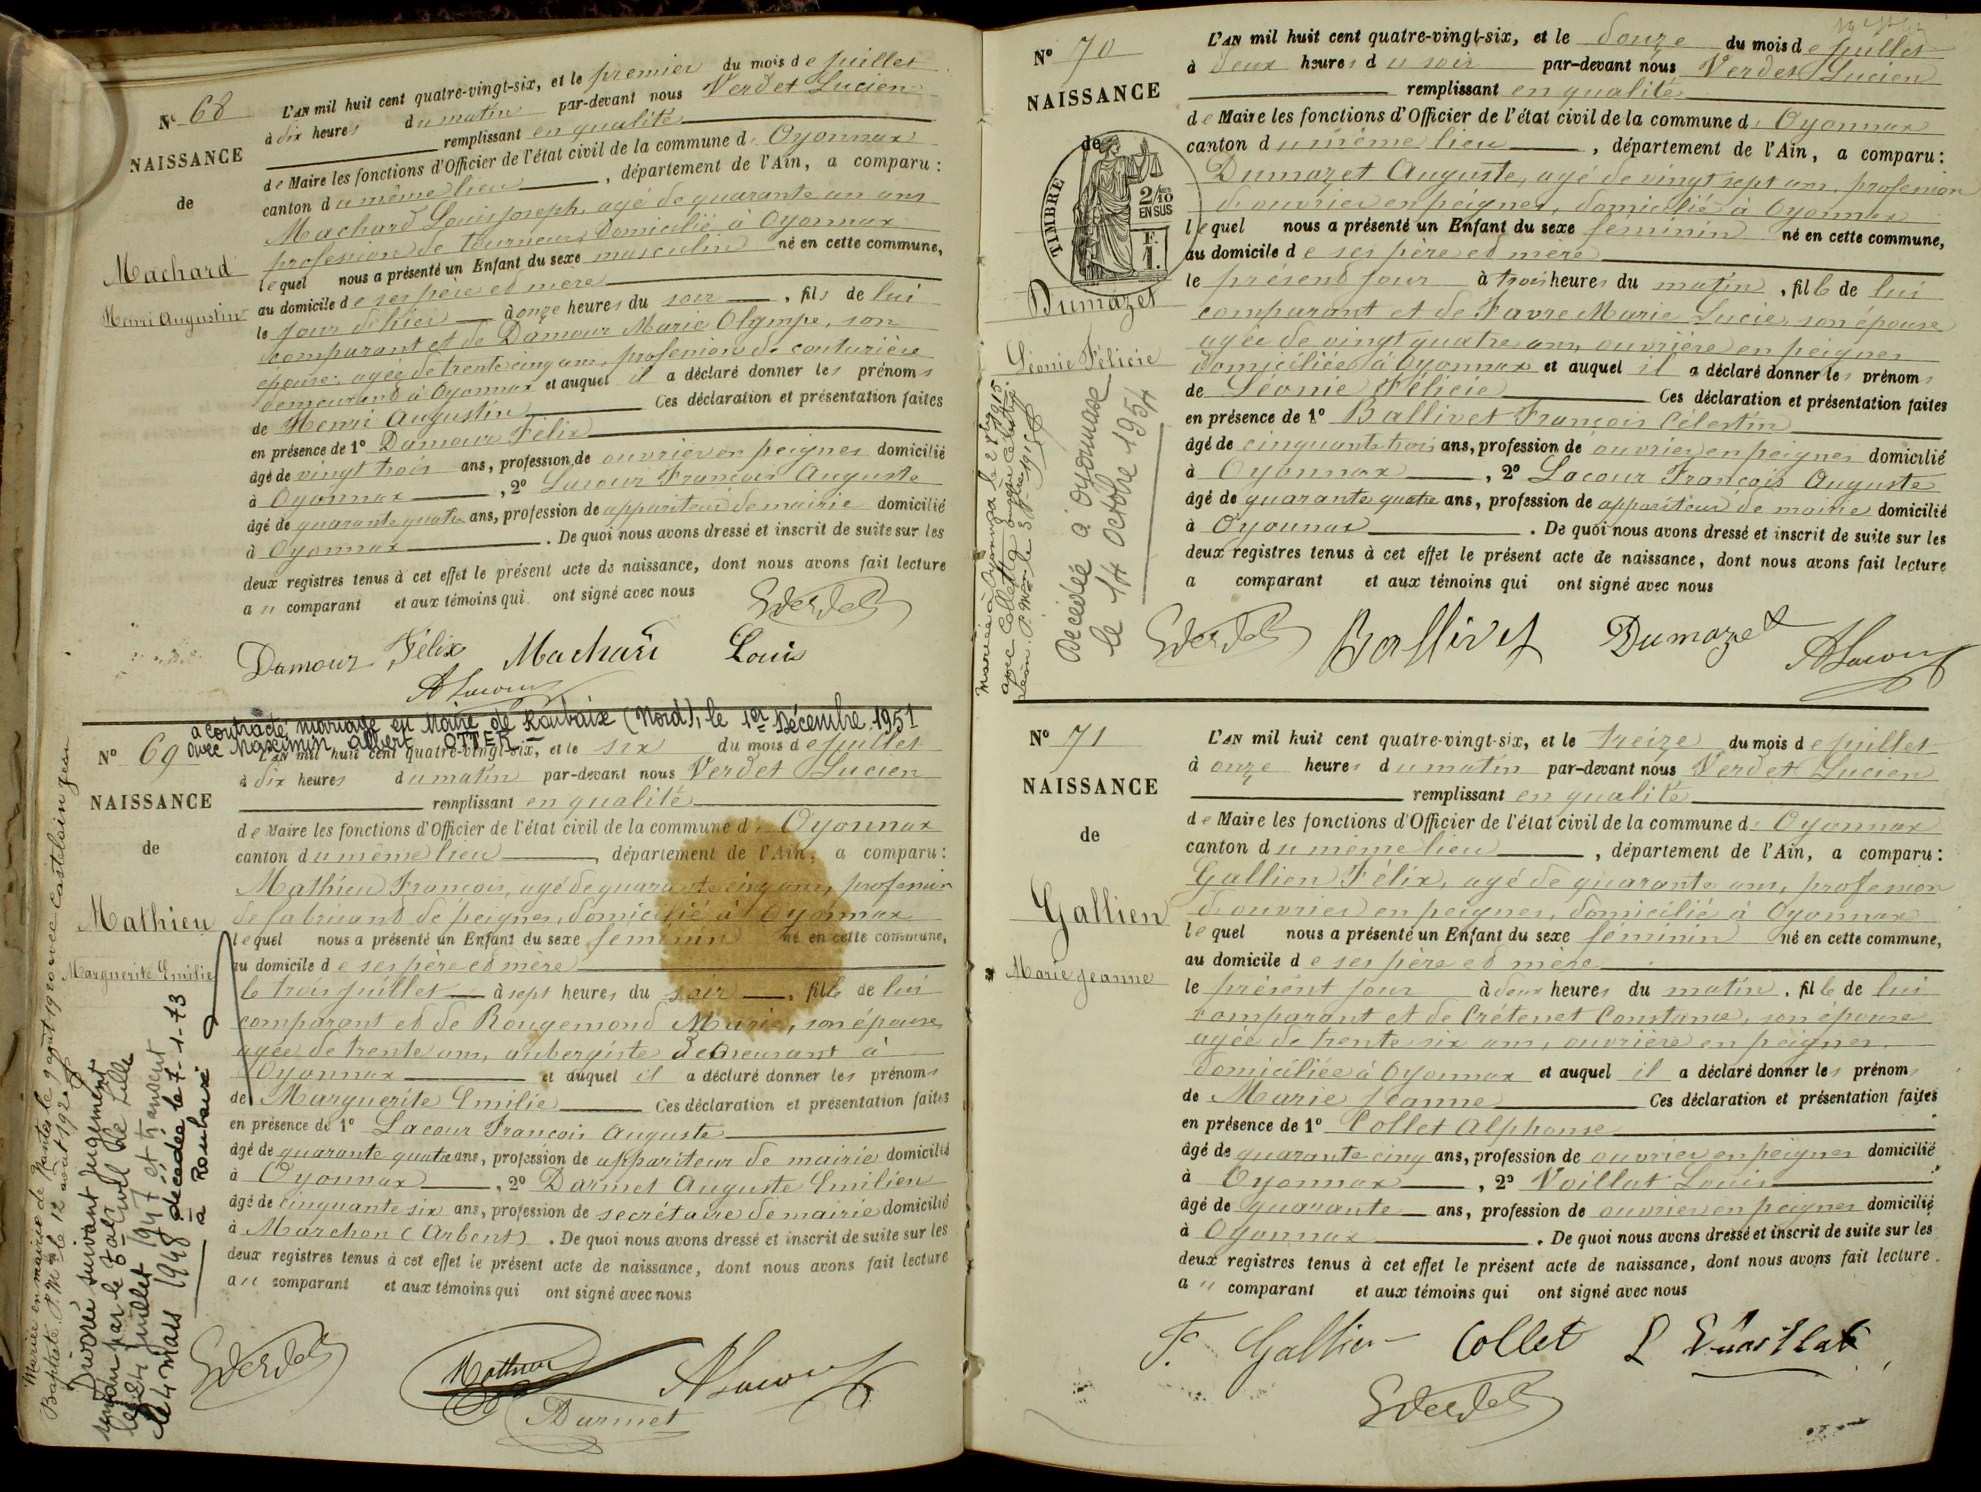 N° 68
NAISSANCE
de
Machard
Henri Augustin
L'AN mil huit cent quatre-vingt-six, et le premier du mois de juillet
à dix heures du matin par-devant nous Verdet Lucien
remplissant en qualité
de Maire les fonctions d'Officier de l'état civil de la commune d' Oyonnax
canton du même lieu, département de l'Ain, a comparu:
Machard Louis Joseph, agé de quarante un ans
profession de tourneur, domicilié à Oyonnax
lequel nous a présenté un Enfant du sexe masculin né en cette commune,
au domicile de ses père et mère
le jour d'hier à onze heures du soir, fils de lui
comparant et de Damour Marie Olympe, son
épouse, agée de trente cinq ans, profession de couturière
demeurant à Oyonnax et auquel il a déclaré donner les prénoms
de Henri Augustin Ces déclaration et présentation faites
en présence de 1° Damour Félix
âgé de vingt trois ans, profession de ouvrier en peignes domicilié
à Oyonnax, 2° Lacour François Auguste
âgé de quarante quatre ans, profession de appariteur de mairie domicilié
à Oyonnax. De quoi nous avons dressé et inscrit de suite sur les
deux registres tenus à cet effet le présent acte de naissance, dont nous avons fait lecture
au comparant et aux témoins qui ont signé avec nous
Verdet
Damour Félix Machard Louis
A Lacour
a contracté mariage en Mairie de Roubaix (Nord), le 1er Décembre 1951
avec Maximin Albert OTTER
N° 69
NAISSANCE
de
Mathieu
Marguerite Emilie
L'AN mil huit cent quatre-vingt-six, et le six du mois de juillet
à dix heures du matin par-devant nous Verdet Lucien
remplissant en qualité
de Maire les fonctions d'Officier de l'état civil de la commune d' Oyonnax
canton du même lieu, département de l'Ain, a comparu:
Mathieu François, agé de quarante cinq ans, profession
de fabricant de peignes, domicilié à Oyonnax
lequel nous a présenté un Enfant du sexe féminin né en cette commune,
au domicile de ses père et mère
le trois juillet à sept heures du soir, fille de lui
comparant et de Rougemond Marie, son épouse
agée de trente ans, aubergiste demeurant à
Oyonnax et auquel il a déclaré donner les prénoms
de Marguerite Emilie Ces déclaration et présentation faites
en présence de 1° Lacour François Auguste
âgé de quarante quatre ans, profession de appariteur de mairie domicilié
à Oyonnax, 2° Darmet Auguste Emilien
âgé de cinquante six ans, profession de secrétaire de mairie domicilié
à Marchon (Arbent). De quoi nous avons dressé et inscrit de suite sur les
deux registres tenus à cet effet le présent acte de naissance, dont nous avons fait lecture
au comparant et aux témoins qui ont signé avec nous
Verdet Mathieu A Lacour
Darmet
Mariée en mairie de Nanterre le 9 août 19 avec Castelain Jean
Baptiste. P. M. le 12 août 1920
Divorcée suivant jugement
rendu par le Bal Civil de Lille
le 24 juillet 1947 et transcrit
le 4 mars 1948
décédée le 7-1-73
à Roubaix
N° 70
NAISSANCE
de
TIMBRE
2/10 EN SUS
F. 1.
Dumazet
Léonie Félicie
L'AN mil huit cent quatre-vingt-six, et le douze du mois de juillet
à deux heures du soir par-devant nous Verdet Lucien
remplissant en qualité
de Maire les fonctions d'Officier de l'état civil de la commune d' Oyonnax
canton du même lieu, département de l'Ain, a comparu:
Dumazet Auguste, agé de vingt sept ans, profession
d'ouvrier en peignes, domicilié à Oyonnax
lequel nous a présenté un Enfant du sexe féminin né en cette commune,
au domicile de ses père et mère
le présent jour à trois heures du matin, fille de lui
comparant et de Favre Marie Lucie, son épouse
agée de vingt quatre ans, ouvrière en peignes
domiciliée à Oyonnax et auquel il a déclaré donner les prénoms
de Léonie Félicie Ces déclaration et présentation faites
en présence de 1° Ballivet François Célestin
âgé de cinquante trois ans, profession de ouvrier en peignes domicilié
à Oyonnax, 2° Lacour François Auguste
âgé de quarante quatre ans, profession de appariteur de mairie domicilié
à Oyonnax. De quoi nous avons dressé et inscrit de suite sur les
deux registres tenus à cet effet le présent acte de naissance, dont nous avons fait lecture
a comparant et aux témoins qui ont signé avec nous
Verdet Ballivet Dumazet A Lacour
Mariée à Oyonnax le 2 1915
avec Collettaz
Décédée à Oyonnax
le 14 Octobre 1954
N° 71
NAISSANCE
de
Gallien
Marie Jeanne
L'AN mil huit cent quatre-vingt-six, et le treize du mois de juillet
à onze heures du matin par-devant nous Verdet Lucien
remplissant en qualité
de Maire les fonctions d'Officier de l'état civil de la commune d' Oyonnax
canton du même lieu, département de l'Ain, a comparu:
Gallien Félix, agé de quarante ans, profession
d'ouvrier en peignes, domicilié à Oyonnax
lequel nous a présenté un Enfant du sexe féminin né en cette commune,
au domicile de ses père et mère
le présent jour à deux heures du matin, fille de lui
comparant et de Crétenet Constance, son épouse
agée de trente six ans, ouvrière en peignes
domiciliée à Oyonnax et auquel il a déclaré donner les prénoms
de Marie Jeanne Ces déclaration et présentation faites
en présence de 1° Collet Alphonse
âgé de quarante cinq ans, profession de ouvrier en peignes domicilié
à Oyonnax, 2° Voillat Louis
âgé de quarante ans, profession de ouvrier en peignes domicilié
à Oyonnax. De quoi nous avons dressé et inscrit de suite sur les
deux registres tenus à cet effet le présent acte de naissance, dont nous avons fait lecture
au comparant et aux témoins qui ont signé avec nous
F. Gallien Collet L Vuaillat
Verdet